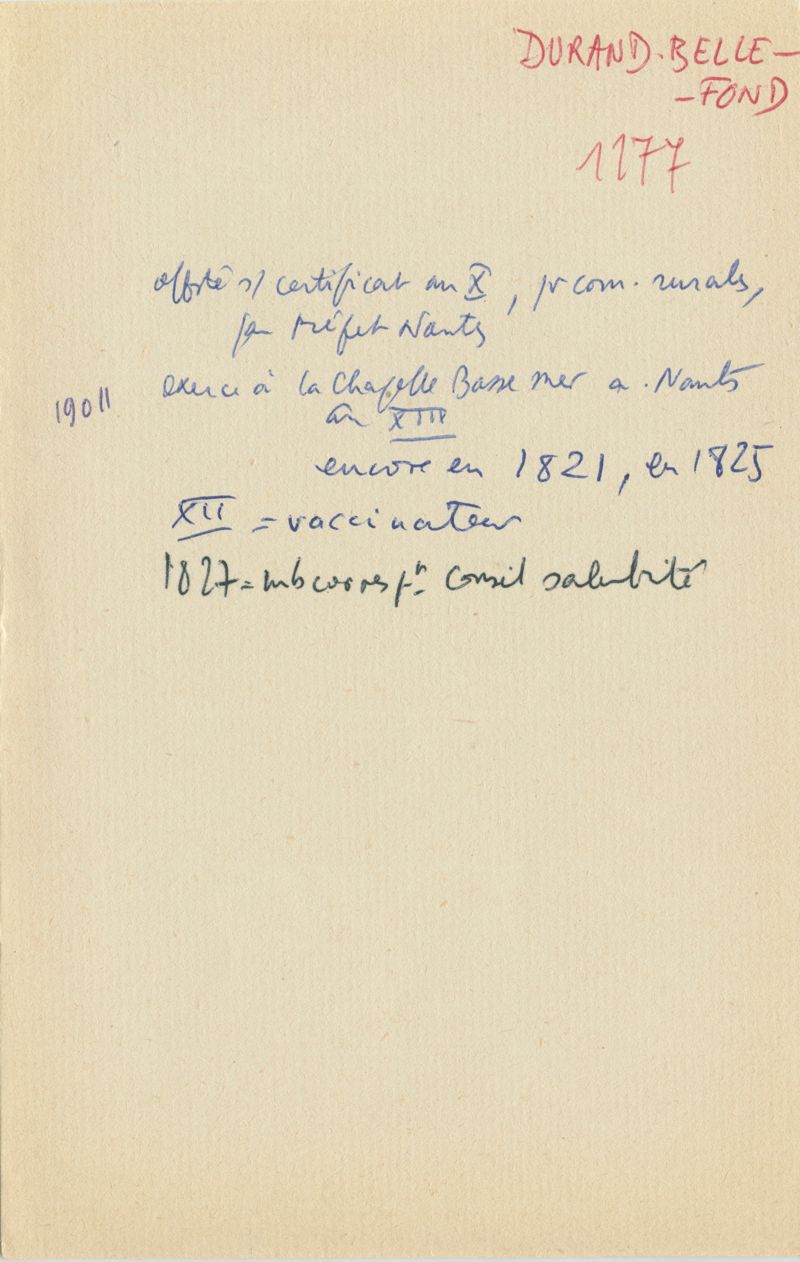 DURAND-BELLE-
-FOND
1177
s/ certificat an X, pr com. rurales,
par Préfet Nantes
exerce à la Chapelle Basse Mer a. Nantes
19011
an XIII
encore en 1821, en 1825
XII = vaccinateur
1827 = mb corresp.n Conseil salubrité